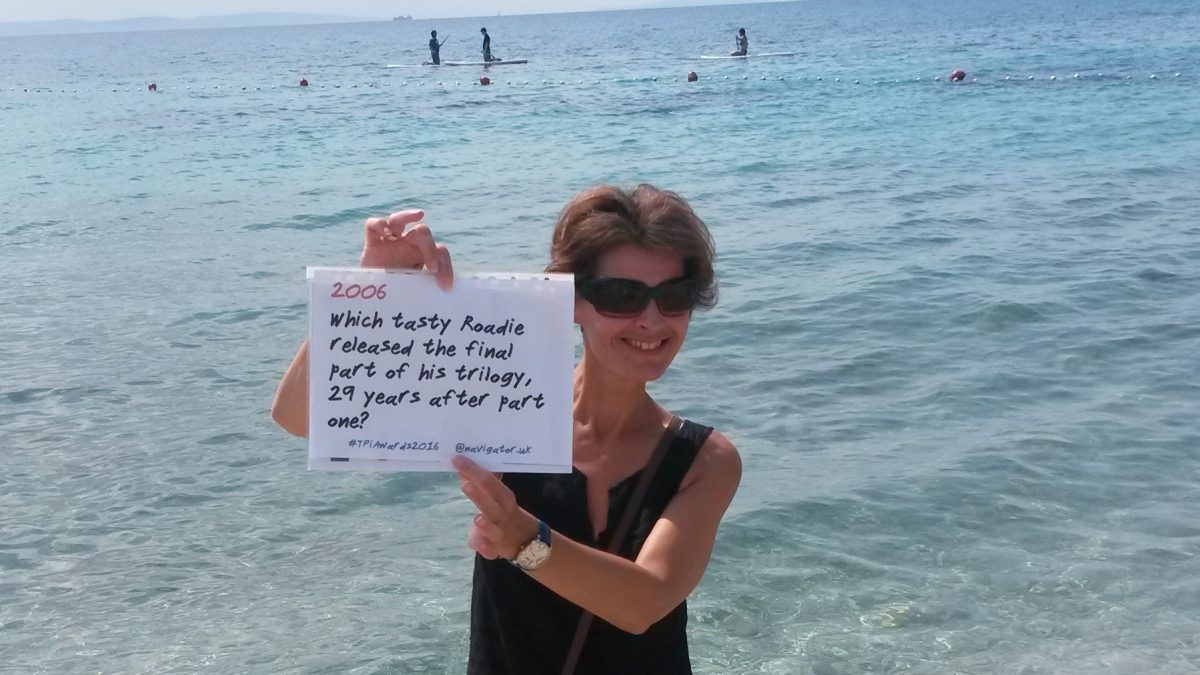 2006
Which tasty Roadie
released the final
part of his trilogy,
29 years after part
one?
#TPiAwards2016 @navigator.uk